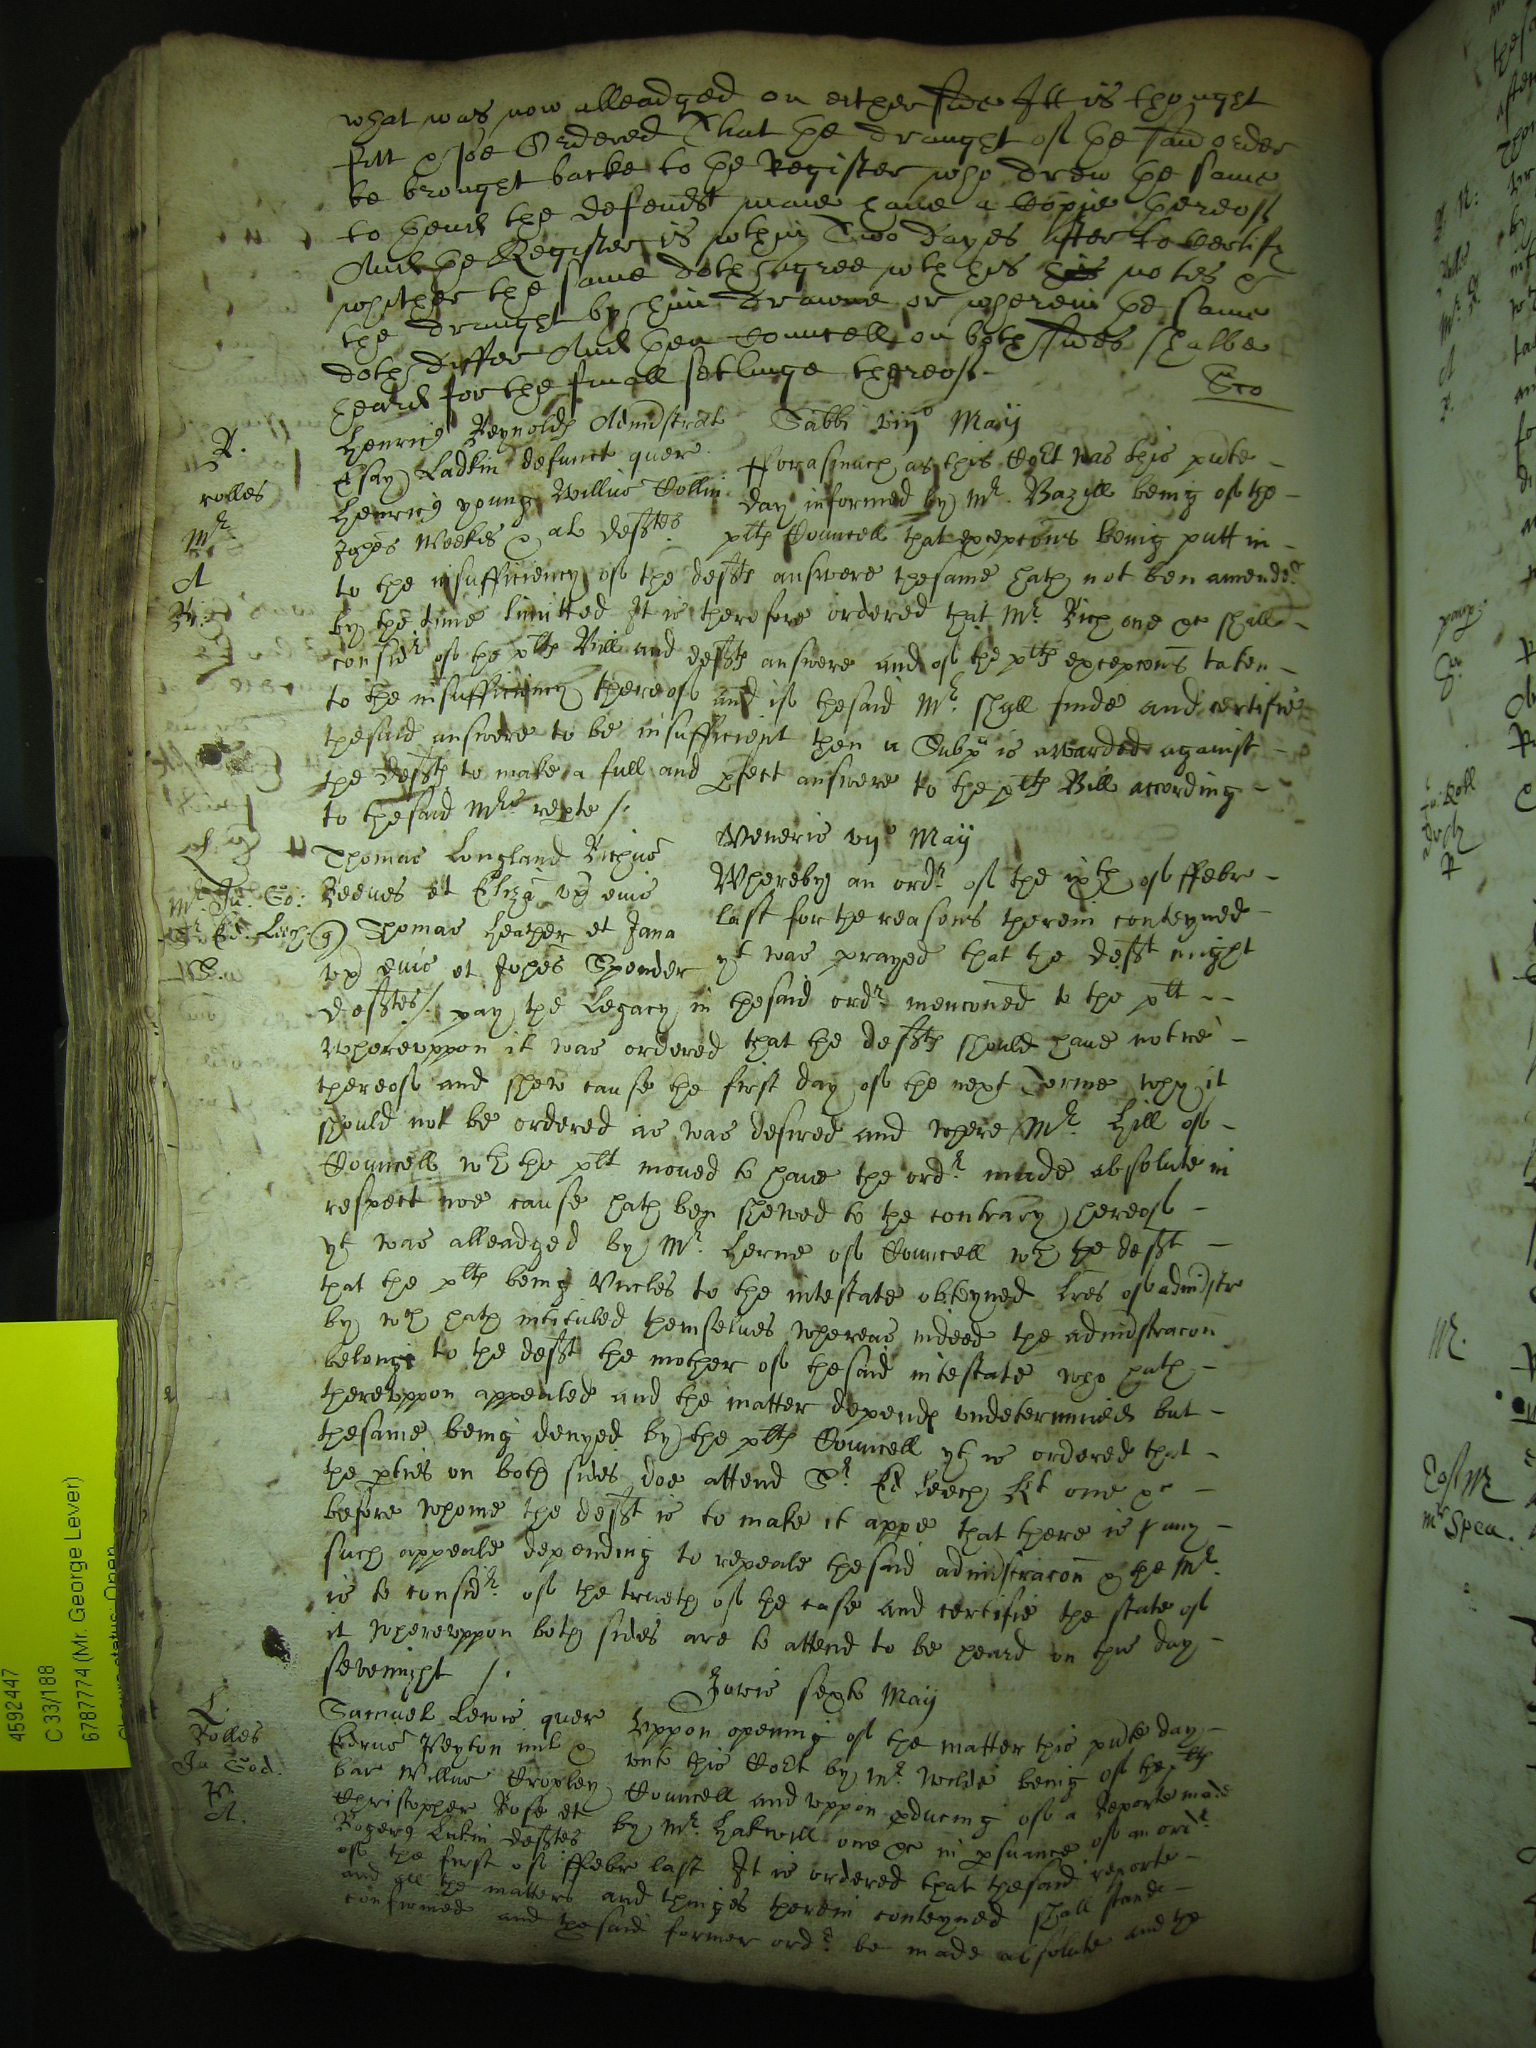 what was now alleadged on either side Itt is thought
fitt & soe Ordered That the draught of the said order
be brought backe to the Register who drew the same
to thend the defendt maie have a Copie thereof
And the Register is wthin Two dayes after to Certify
whither the same doth agree wth his his notes &
the draught by him drawne or wherein the same
doth differ And then Councell on both sides shalbe
heard for the finall setlinge thereof
R.
rolles
Mr.
A
Henric9 Reynolds Administrat
Esay Ladkin defunct quer
Henric9 young Willus Collin
Johes Weekes & al deftes
Sabbi viijo Maij
Fforasmuch as this Cort was this pnte
day informed by Mr. Bazill being of the
plts Councell that excepcons being putt in
to the insufficiency of the defts answere thesame hath not ben amended
by the time limitted It is therefore ordered that Mr. Rich one &c shall
considr of the plts Bill and defts answere and of the plts excepcons taken
to the insufficiency thereof and if thesaid Mr. shall finde and certifie
thesaid answere to be insufficient then a Subpa is awarded against
the defts to make a full and pfect answere to the plts Bill according
to thesaid Mrs repte /.
Mr. Ju. Go:
Sr. Ed. Leech
Thomas Longland Richus
Reeves et Eliza ux eius
q) Thomas Heather et Jana
ux eius et Johes Spender
deftes /.
Veneris vijo Maij
Whereby an ordr. of the ixth of ffebr
last for the reasons therein conteyned
yt was prayed that the deft might
pay the Legacy in thesaid ordr. menconed to the plt
Whereuppon it was ordered that the defts should have notice
thereof and shew cause the first day of the next Terme why it
should not be ordered as was desired and where Mr. Hill of
Councell wth the plt moved to have the ordr. made absolute in
respect noe cause hath ben shewed to the contrary thereof
yt was alleadged by Mr. Herne of Councell wth the deft
that the plts being Uncles to the intestate obteyned Lres of administr
by wch hath intituled themselves whereas indeed the administracon
belongs to the deft the mother of thesaid intestate who hath
thereuppon appealed and the matter depends undetermined but
thesame being denyed by the plts Councell yt is ordered that
the pties on both sides doe attend Sr. Ed Leech Kt one &c
before whome the deft is to make it appe that there is any
such appeale depending to repeale thesaid administracon & the Mr.
is to considr. of the trueth of the case and certifie the state of
it whereuppon both sides are to attend to be heard on this day
sevenight /.
L.
Rolles
Ju God.
R
A.
Samuel Lewis quer
Edrus Peyton mil &
bar Willus Cropley
Christopher Rose et
Roger9 Lukin deftes
Jovis sexto Maij
Uppon opening of the matter this pnte day
unto this Cort by Mr. Wilde being of the plts
Councell and uppon pducing of a Reporte made
by Mr. Hakewill one &c in psuance of an ordr.
of the first of ffebr last It is ordered that thesaid reporte
and all the matters and thinges therein conteyned shall stande
confirmed and thesaid former ordr. be made absolute and the
4592447
C 33/188
6787774 (Mr. George Lever)